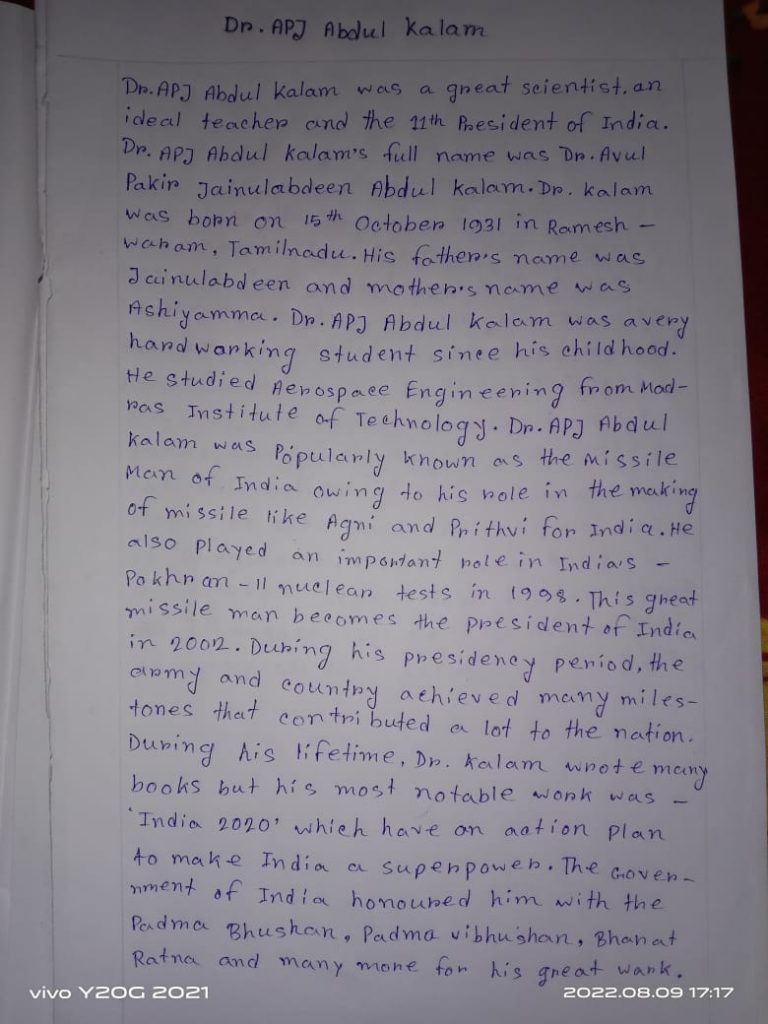 Dr. APJ Abdul Kalam
Dr. APJ Abdul Kalam was a great scientist, an
ideal teacher and the 11th President of India.
Dr. APJ Abdul Kalam's full name was Dr. Avul
Pakir Jainulabdeen Abdul Kalam. Dr. Kalam
was born on 15th October 1931 in Ramesh –
waram, Tamilnadu. His father's name was
Jainulabdeen and mother's name was
Ashiyamma. Dr. APJ Abdul Kalam was a very
hardworking student since his childhood.
He studied Aerospace Engineering from Mad-
ras Institute of Technology. Dr. APJ Abdul
Kalam was Popularly known as the Missile
Man of India owing to his role in the making
of missile like Agni and Prithvi for India. He
also played an important role in India's –
Pokhran – II nuclear tests in 1998. This great
missile man becomes the president of India
in 2002. During his presidency period, the
army and country achieved many miles-
tones that contributed a lot to the nation.
During his lifetime, Dr. Kalam wrote many
books but his most notable work was –
'India 2020' which have an action plan
to make India a superpower. The Gover-
nment of India honoured him with the
Padma Bhushan, Padma vibhushan, Bharat
Ratna and many more for his great wark.
vivo Y20G 2021
2022.08.09 17:17